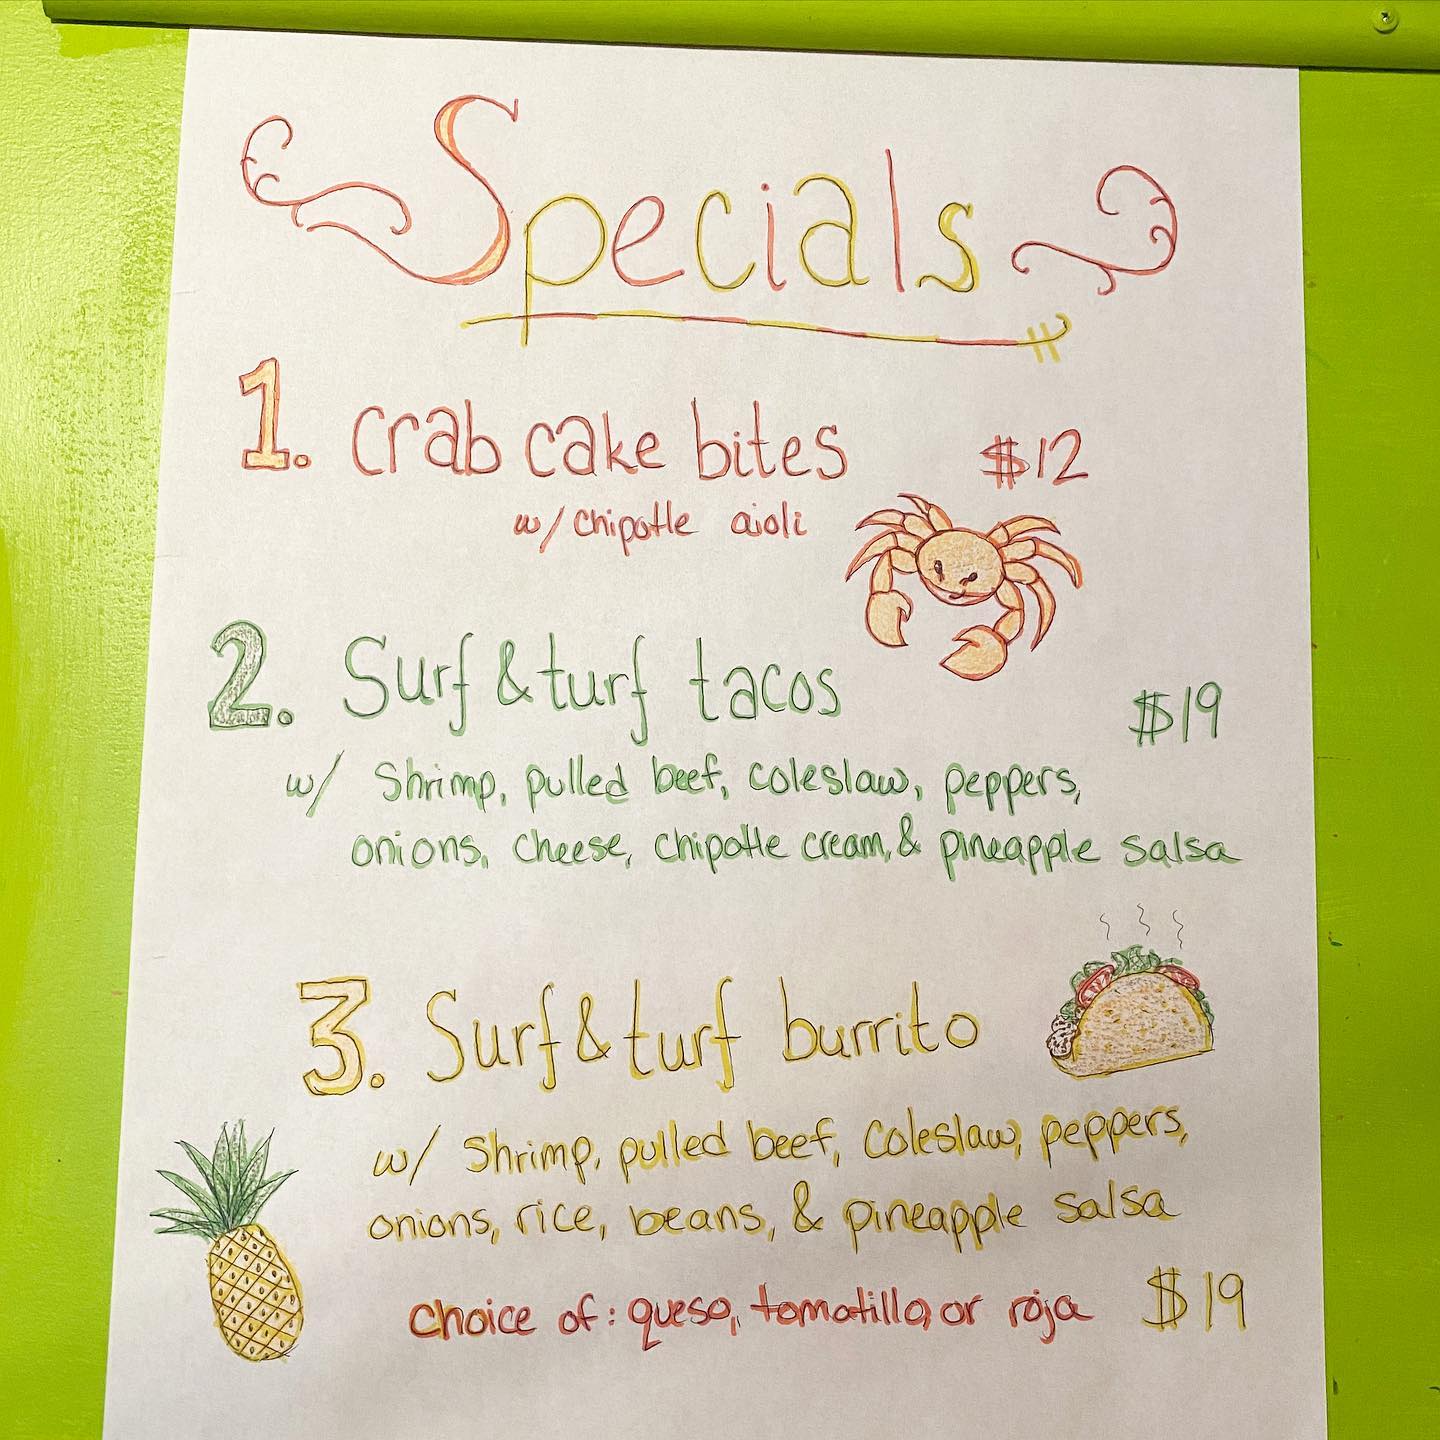 Specials
1. Crab cake bites $12
w/ chipotle aioli
2. Surf & turf tacos $19
w/ Shrimp, pulled beef, coleslaw, peppers,
onions, cheese, chipotle cream, & pineapple salsa
3. Surf & turf burrito
w/ Shrimp, pulled beef, coleslaw, peppers,
onions, rice, beans, & pineapple salsa
choice of: queso, tomatillo, or roja $19